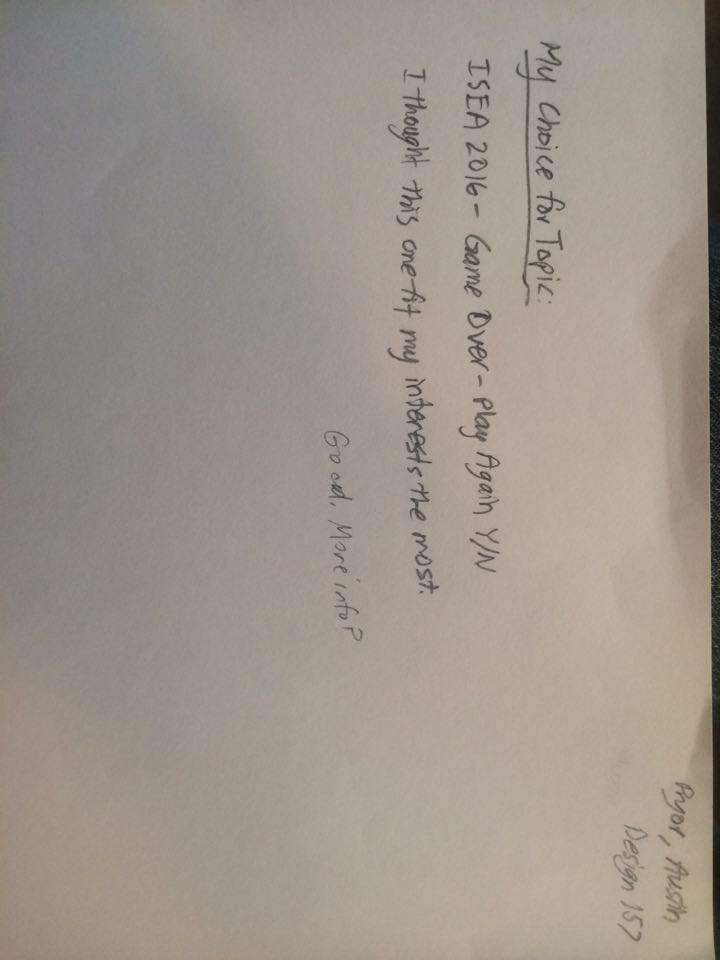 Pryor, Austin
Design 157
My Choice for Topic:
ISEA 2016 - Game Over - Play Again Y/N
I thought this one fit my interests the most.
Good. More info?